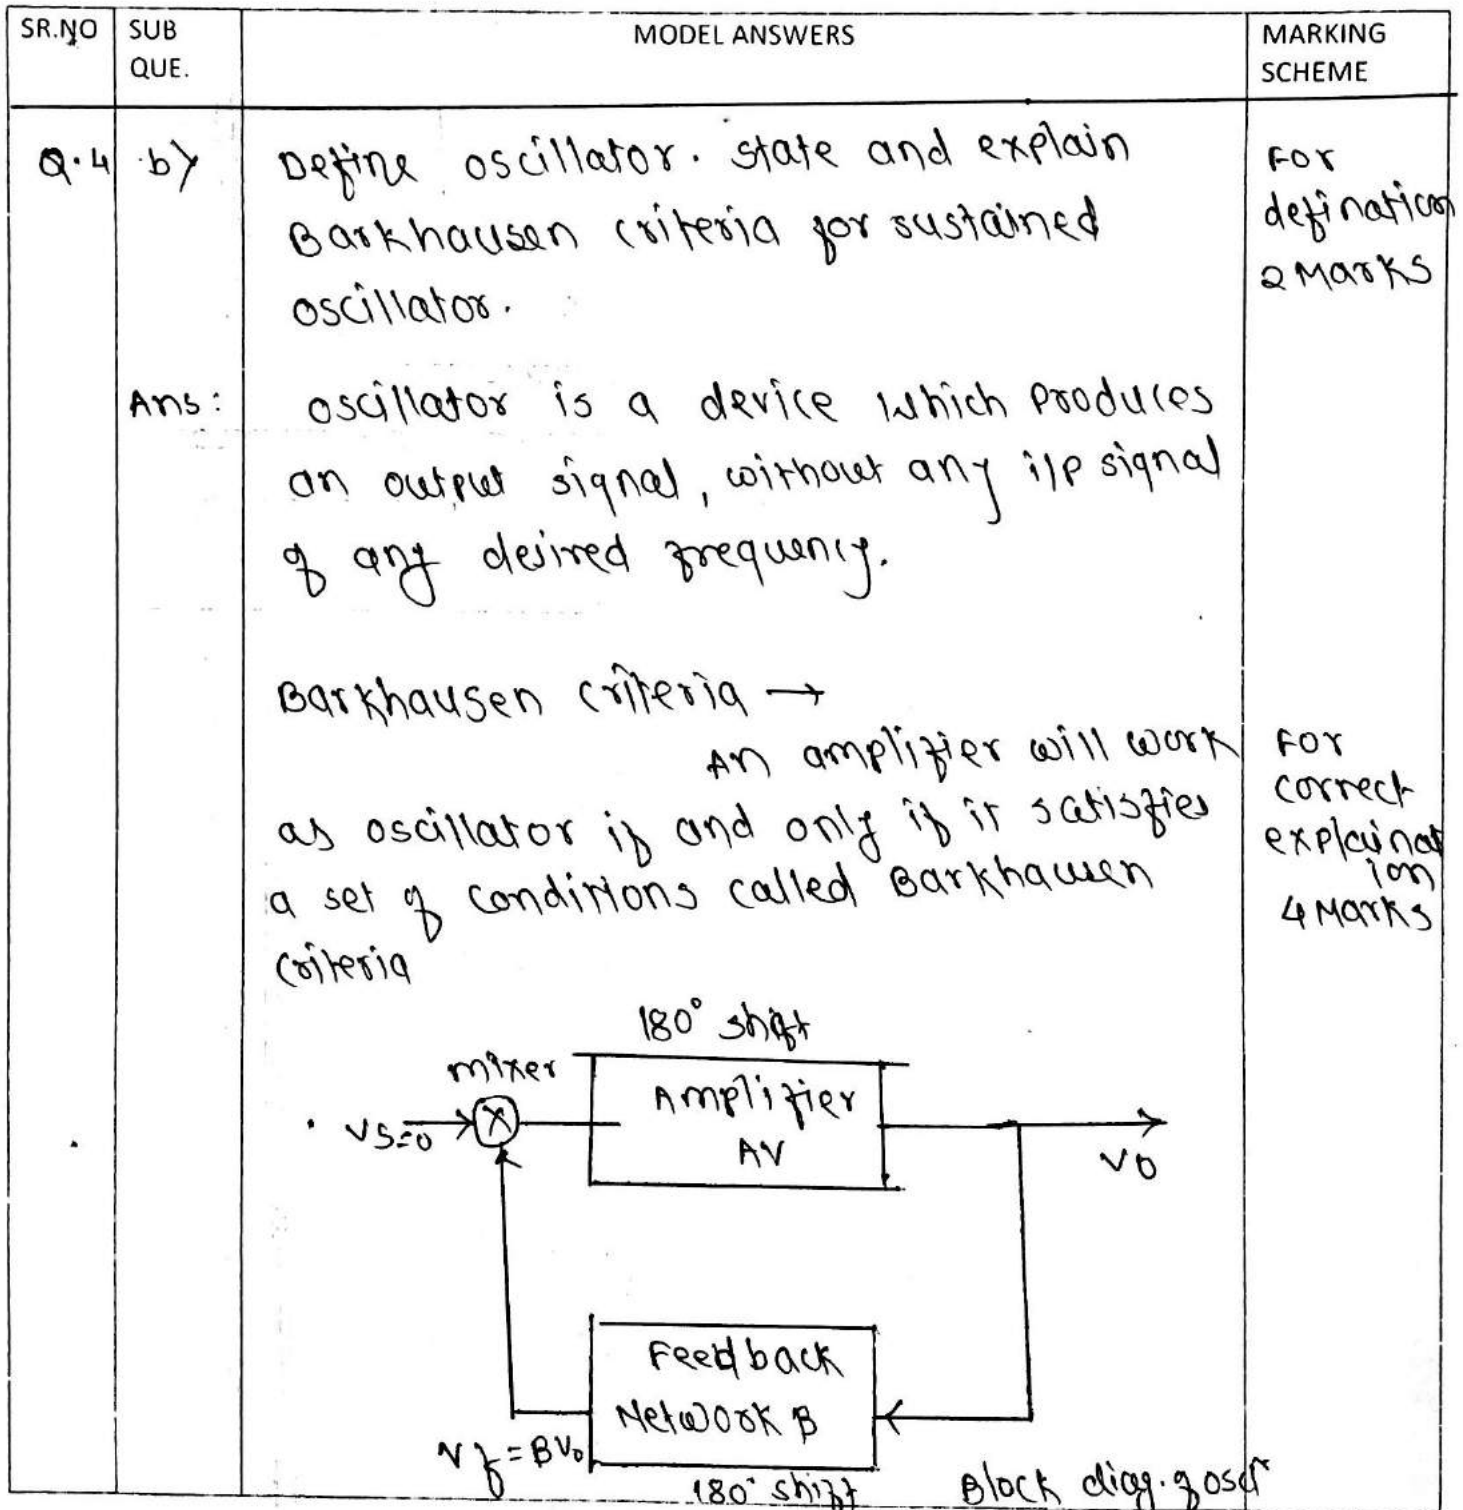 SR.NO SUB QUE. MODEL ANSWERS MARKING SCHEME
Q.4 b) Define oscillator. state and explain
Barkhausen criteria for sustained
oscillator.
For
defination
2 Marks
Ans: oscillator is a device which produces
an output signal, without any i/p signal
of any desired frequency.
Barkhausen criteria →
An amplifier will work
as oscillator if and only if it satisfies
a set of conditions called Barkhausen
criteria
For
correct
explainat
ion
4 Marks
180° shift
mixer
Amplifier
AV
VS=0
X
VO
Feedback
Network B
Vf = BVo
180° shift
Block diag. of oscr